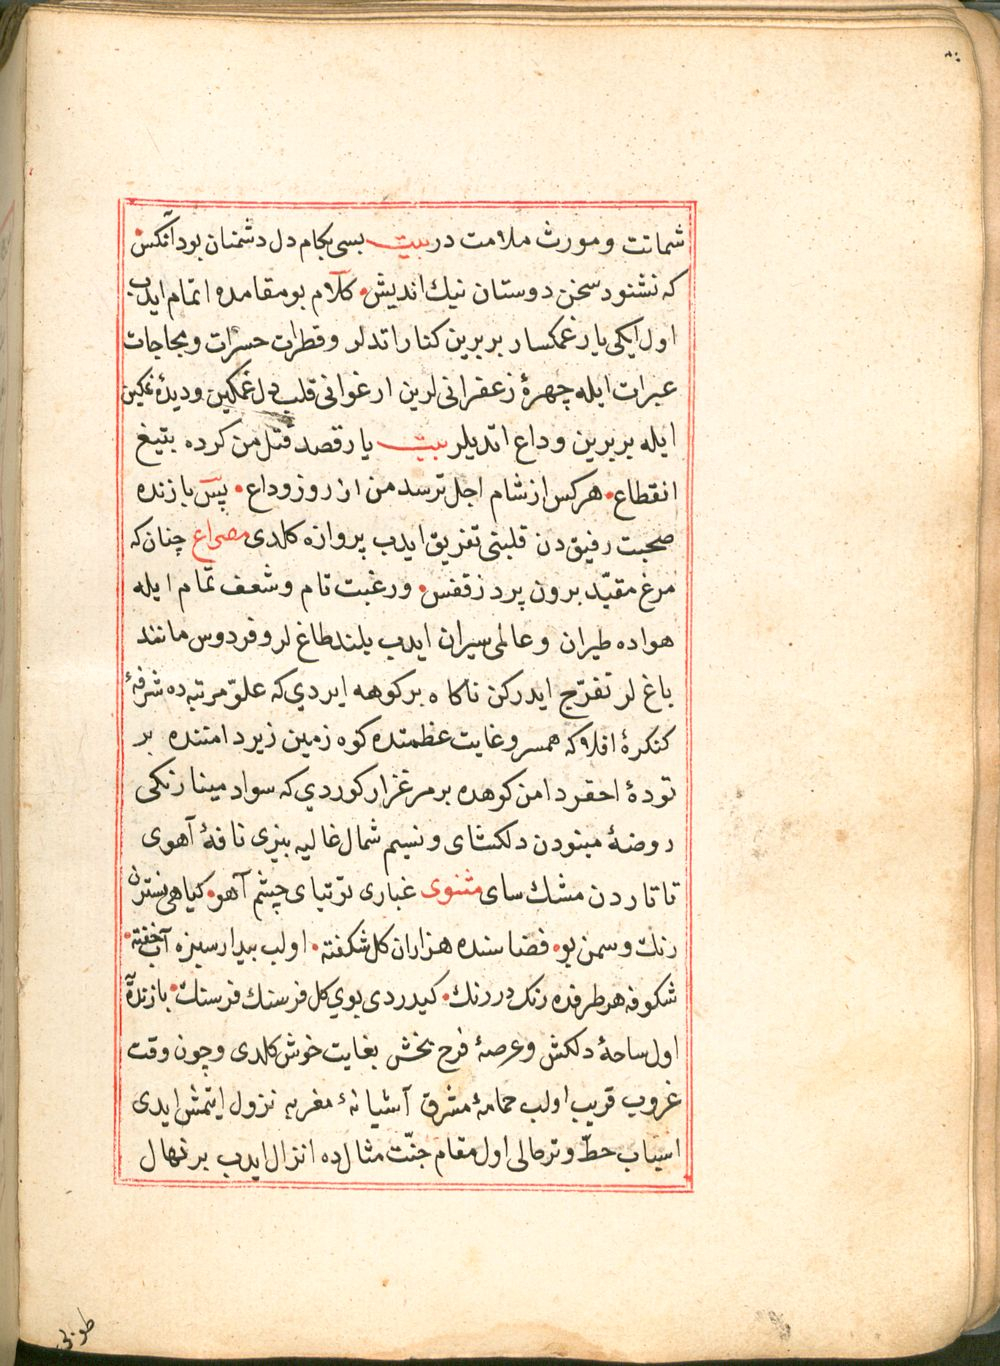 شماتت و مورث ملامت در بیت بسی بکام دل دشمنان بود آنکس
که نشنود سخن دوستان نیك اندیش کلام بو مقامده اتمام ایدب
اول ایکی یار غمکسار بربرین کنار اتدلر و قطرات حسرات و مجاجات
عبرات ایله چهرۀ زعفرانی لرین ارغوانی قلب دل غمکین و دیدۀ نمکین
ایله بربرین وداع اتدیلر بیت یار قصد قتل من کرده بتیغ
انقطاع هرکس از شام اجل ترسد من از روز وداع پس بازنده
صحبت رفیق دن قلبتی تفریق ایدب پروازه کلدی مصراع چنان که
مرغ مقیّد برون پرد ز قفس و رغبت تام و شعف تمام ایله
هواده طیران و عالمی سیران ایدب بلند طاغ لر و فردوس مانند
باغ لر تفرّج ایدرکن ناکاه بر کوهه ایردي که علوّ مرتبه ده شرفۀ
کنکرۀ افلاکه همسر و غایت عظمتده کوه زمین زیر دامننده بر
تودۀ احقر دامن کوهده بر مرغزار کوردي که سواد مینا رنکی
روضۀ مینودن دلکشای و نسیم شمال غالیه بیزی نافۀ آهوی
تاتاردن مشك سای مثنوی غباری توتیای چشم آهو کیاهی نسترن
رنك و سمن بو فضاسنده هزاران کل شکفته اولب بیدار سبزه آب خفته
شکوفه هر طرفده رنك در رنك کیدردی بوي کل فرسنك فرسنك بازندۀ
اول ساحۀ دلکش و عرصۀ فرح بخش بغایت خوش کلدی و چون وقت
غروب قریب اولب حمامۀ مشرق آشیانۀ مغربه نزول ایتمش ایدی
اسباب حطّ و ترحالی اول مقام جنّت مثال ده انزال ایدب بر نهال
طوبی